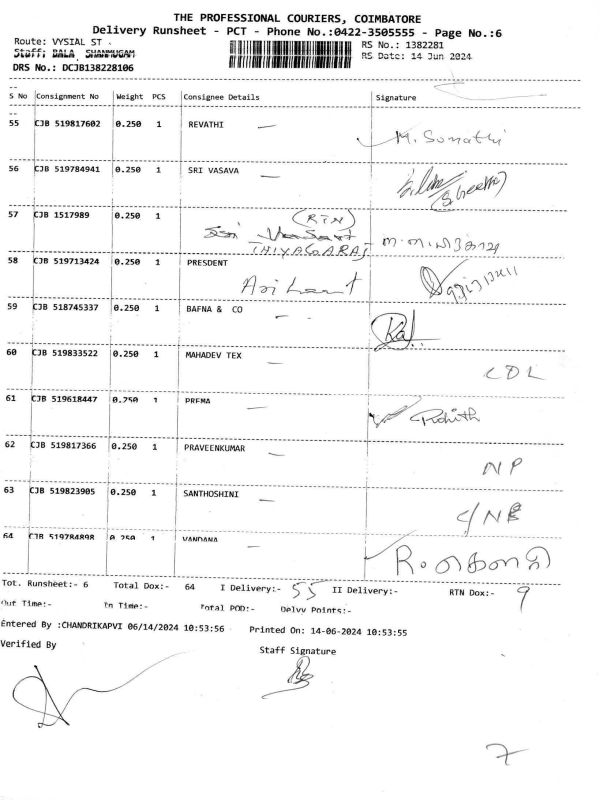 THE PROFESSIONAL COURIERS, COIMBATORE
Delivery Runsheet - PCT - Phone No.:0422-3505555 - Page No.:6
Route: VYSIAL ST . RS No.: 1382281
Staff: BALA SHANMUGAM RS Date: 14 Jun 2024
DRS No.: DCJB138228106
S No Consignment No Weight PCS Consignee Details Signature
55 CJB 519817602 0.250 1 REVATHI — M. Sumathi
56 CJB 519784941 0.250 1 SRI VASAVA —
57 CJB 1517989 0.250 1 (RTN)
THIYAGARAJ
58 CJB 519713424 0.250 1 PRESDENT
Arihant
59 CJB 518745337 0.250 1 BAFNA & CO —
60 CJB 519833522 0.250 1 MAHADEV TEX — CDL
61 CJB 519618447 0.250 1 PREMA — Rohith
62 CJB 519817366 0.250 1 PRAVEENKUMAR — NP
63 CJB 519823905 0.250 1 SANTHOSHINI —
64 CJB 519784898 0.250 1 VANDANA —
Tot. Runsheet:- 6 Total Dox:- 64 I Delivery:- 55 II Delivery:- RTN Dox:- 9
Out Time:- In Time:- Total POD:- Delvy Points:-
Entered By :CHANDRIKAPVI 06/14/2024 10:53:56 Printed On: 14-06-2024 10:53:55
Verified By Staff Signature
7